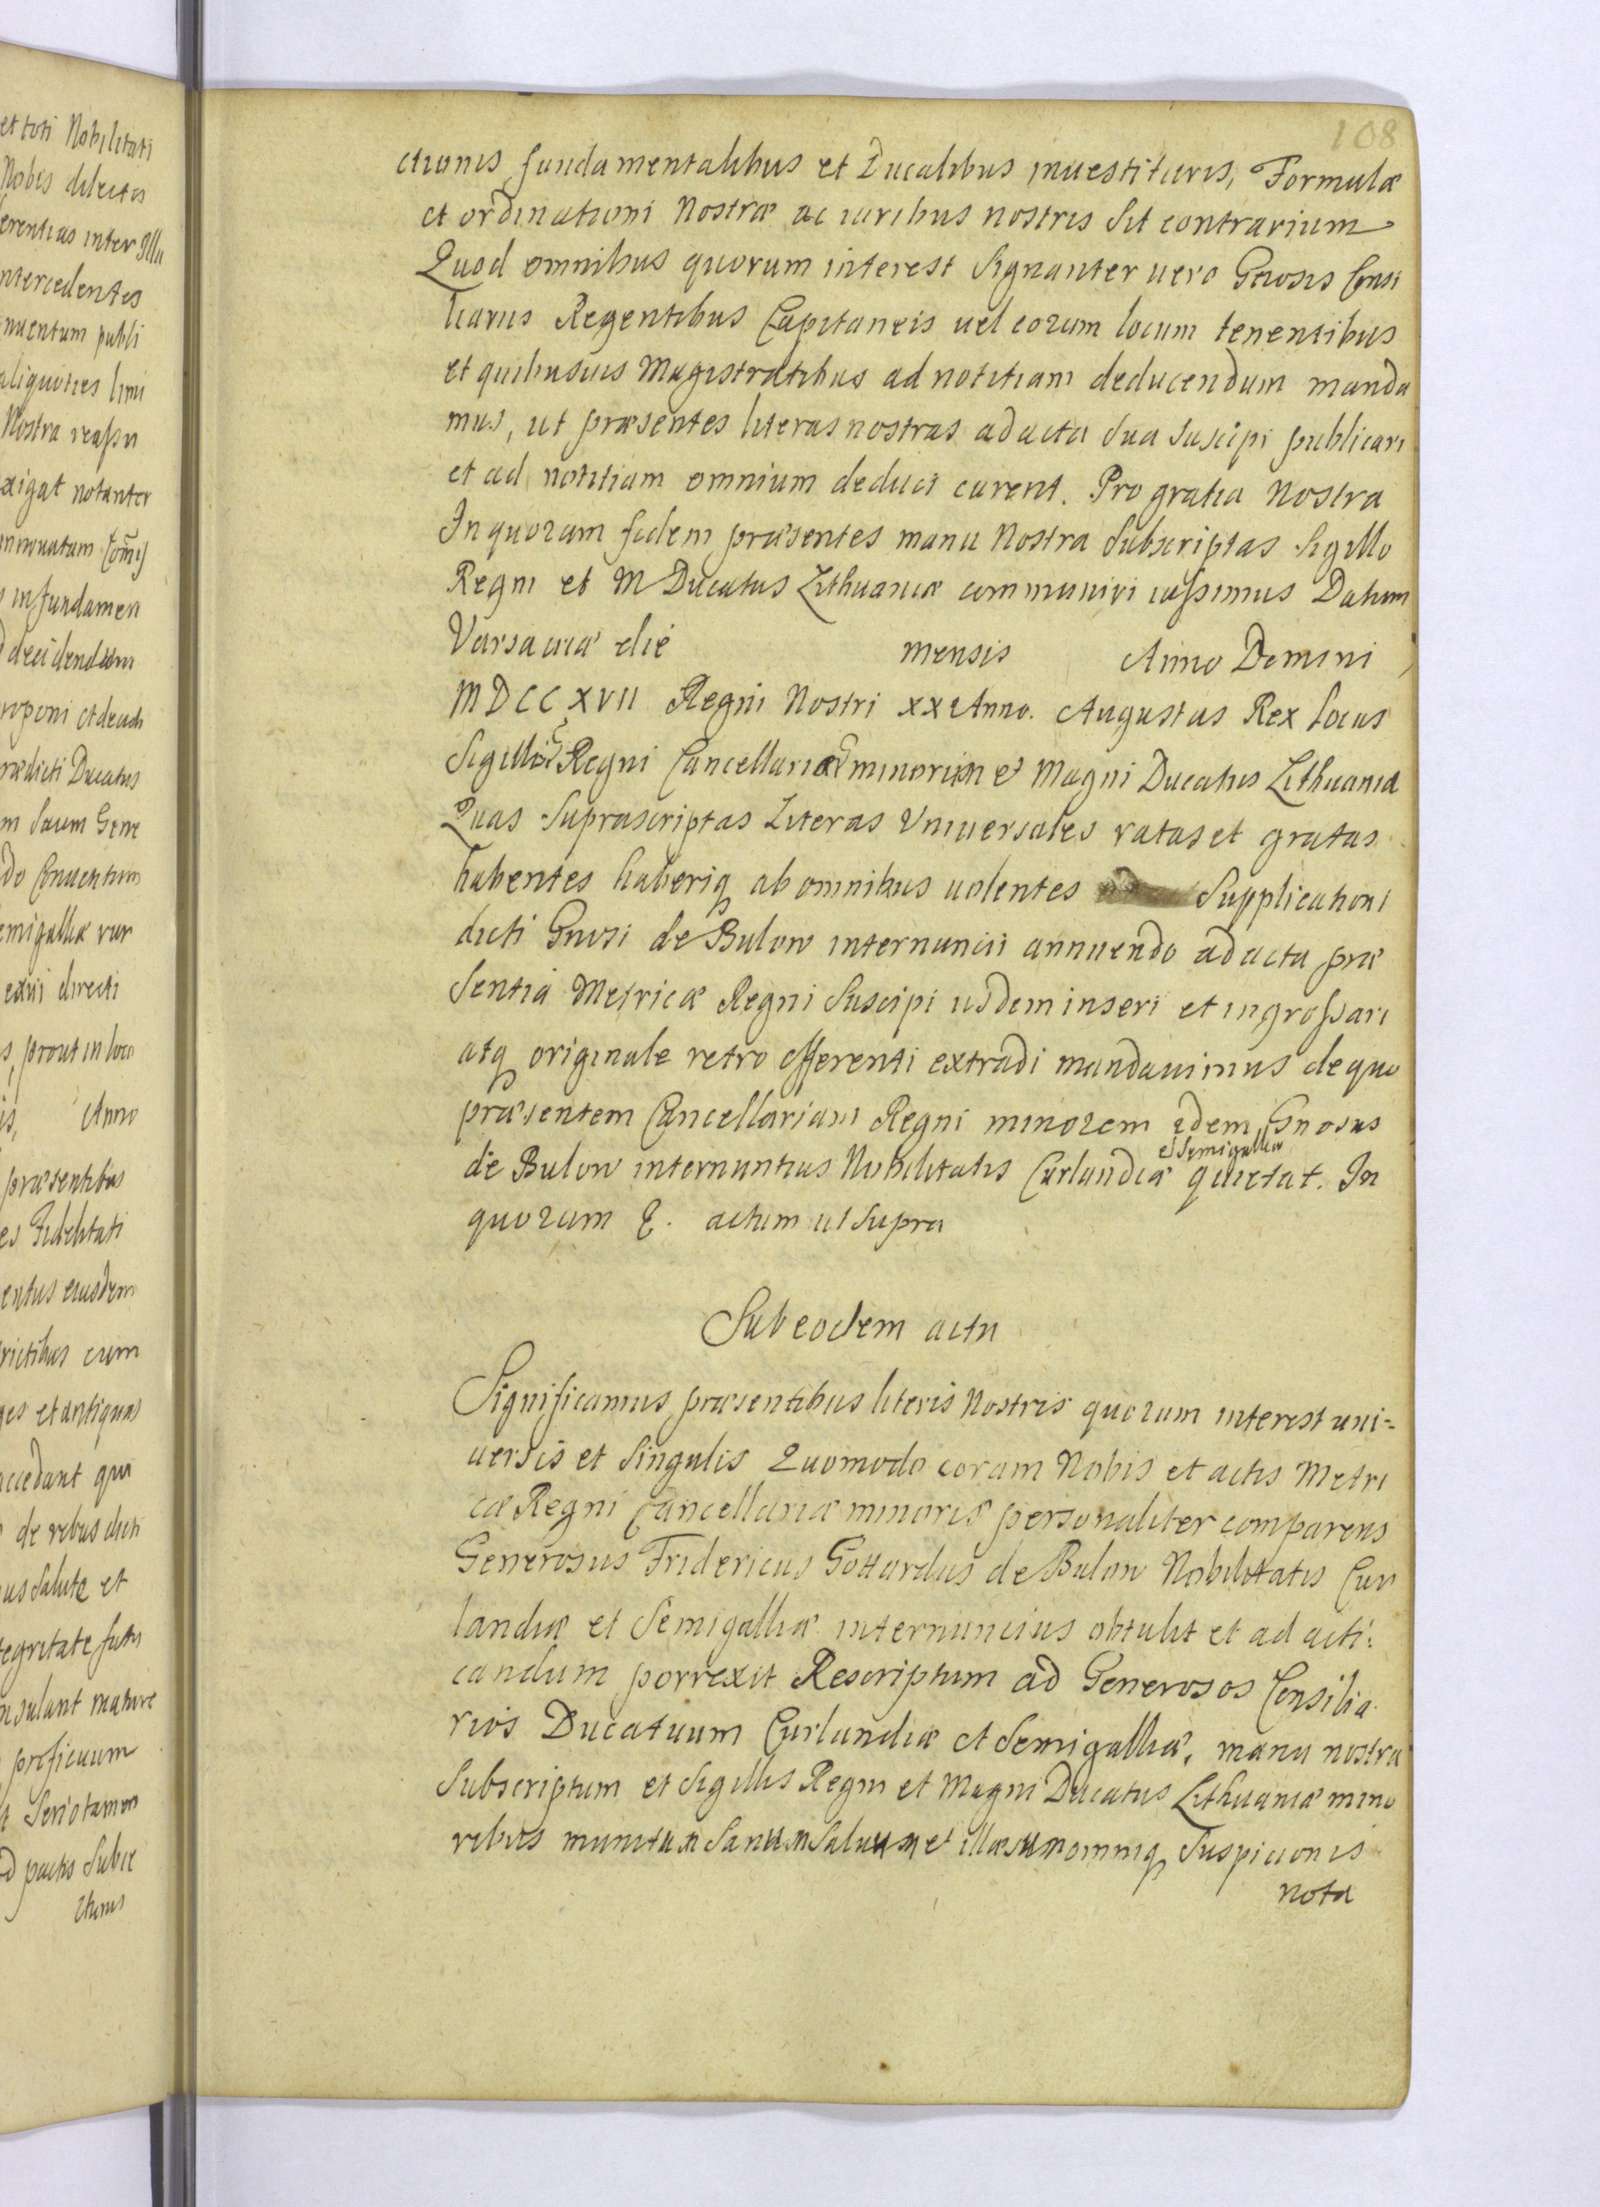 et toti Nobilitati
Nobis dilectos
erentias inter Illu
ntercedentes
nuentum publi
aliquoties limi
Nostra reassu
exigat notanter
innouatum
in fundamen
decidendum
roponi et decidi
rædicti Ducatus
m suum Gene
do Conuentum
emigalliæ
directi
s, prout in loco
is, Anno
præsentibus
es Fidelitati
entus eiusdem
rictibus cum
ges et antiquas
accedant qui
de rebus dicti
us salute et
tegritate
nsulant mature
proficuum
Serio tamen
pactis Subie
ctionis
108
ctionis fundamentalibus et Ducalibus inuestituris, Formulæ
et ordinationi Nostræ ac iuribus nostris sit contrarium
Quod omnibus quorum interest signanter uero Gnosis Consi
liariis Regentibus Capitaneis uel eorum locum tenentibus
et quibusuis Magistratibus ad notitiam deducendum manda
mus, ut præsentes literas nostras ad acta sua suscipi publicari
et ad notitiam omnium deduci curent. Pro gratia Nostra
In quorum fidem præsentes manu Nostra Subscriptas Sigillo
Regni et M Ducatus Lithuaniæ communiri iussimus Datum
Varsauiæ die mensis Anno Domini
MDCCXVII Regni Nostri XX Anno. Augustus Rex Locus
Sigilli Regni Cancellariæ minorum et Magni Ducatus Lithuaniæ
Quas Suprascriptas Literas Vniuersales ratas et gratas
habentes haberiq ab omnibus uolentes Supplicationi
dicti Gnosi de Bulow internuncii annuendo ad acta præ
sentia Metricæ Regni Suscipi iisdem inseri et ingrossari
atq originale retro offerenti extradi mandauimus de quo
præsentem Cancellariam Regni minorem idem Gnosus
et Semigalliæ
de Bulow internuntius Nobilitatis Curlandiæ quietat. In
quorum &. actum ut supra
Sub eodem actu
Significamus præsentibus literis Nostris quorum interest uni=
uersis et singulis Quomodo coram Nobis et actis Metri
cæ Regni Cancellariæ minoris personaliter comparens
Generosus Fridericus Gottardus de Bulow Nobilitatis Cur
landiæ et Semigalliæ internuncius obtulit et ad acti:
candum porrexit Rescriptum ad Generosos Consilia
rios Ducatuum Curlandiæ et Semigalliæ, manu nostra
Subscriptum et Sigillis Regni et Magni Ducatus Lithuaniæ mino
ribus munitum Sanum Saluum et illæsum omniq Suspicionis
nota